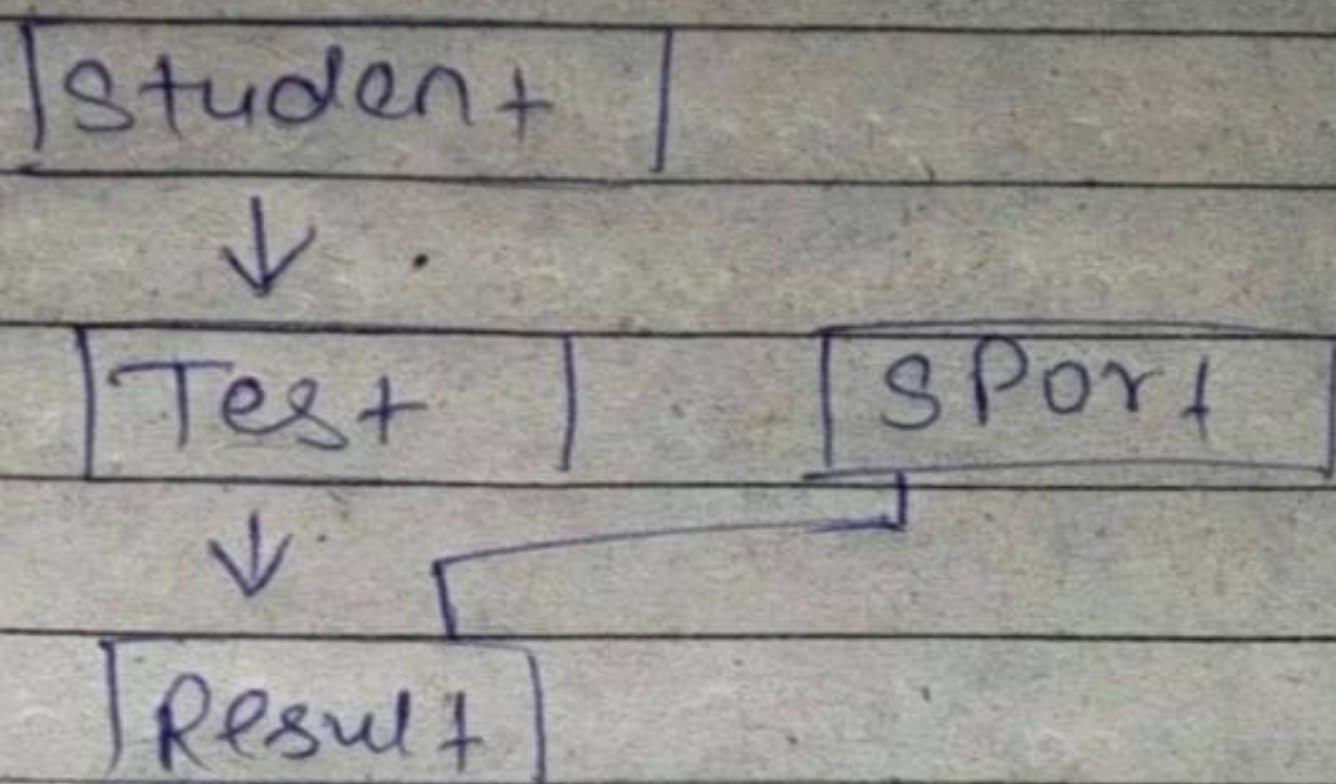 Student
Test SPort
Result